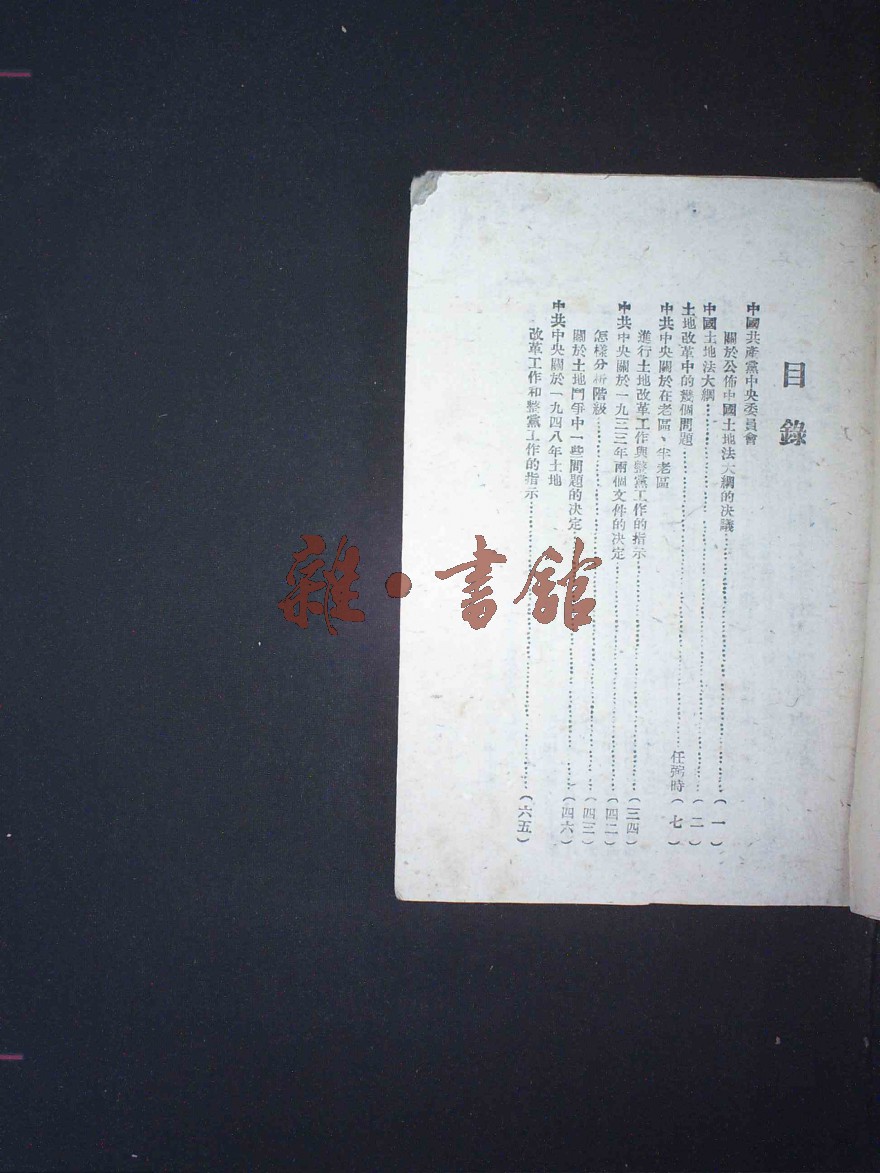 目錄
中國共產黨中央委員會
關於公佈中國土地法大綱的决議……(一)
中國土地法大綱……(二)
土地改革中的幾個問題……任弼時(七)
中共中央關於在老區、半老區
進行土地改革工作與整黨工作的指示……(三四)
中共中央關於一九三三年兩個文件的决定……(四二)
怎樣分析階級……(四三)
關於土地鬥爭中一些問題的决定……(四六)
中共中央關於一九四八年土地
改革工作和整黨工作的指示……(六五)
雜·書館